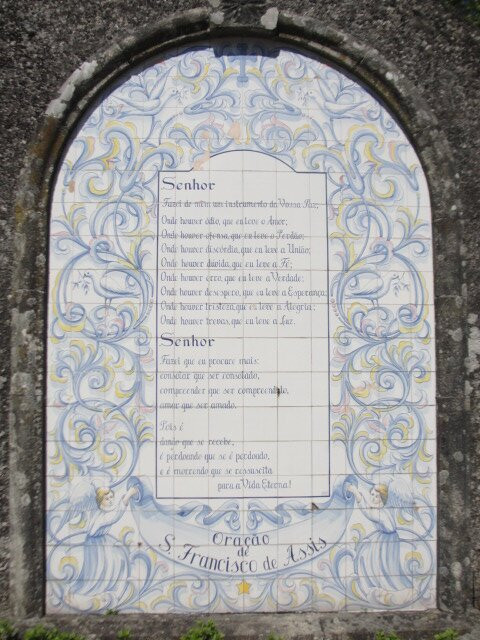 Senhor
Fazei de mim um instrumento da Vossa Paz;
Onde houver ódio, que eu leve o Amor;
Onde houver ofensa, que eu leve o Perdão;
Onde houver discórdia, que eu leve a União;
Onde houver dúvida, que eu leve a Fé;
Onde houver erro, que eu leve a Verdade;
Onde houver desespero, que eu leve a Esperança;
Onde houver tristeza, que eu leve a Alegria;
Onde houver trevas, que eu leve a Luz.
Senhor
Fazei que eu procure mais:
consolar que ser consolado,
compreender que ser compreendido,
amar que ser amado.
Pois é
dando que se recebe,
é perdoando que se é perdoado,
e é morrendo que se ressuscita
para a Vida Eterna!
Oração
de
S. Francisco de Assis